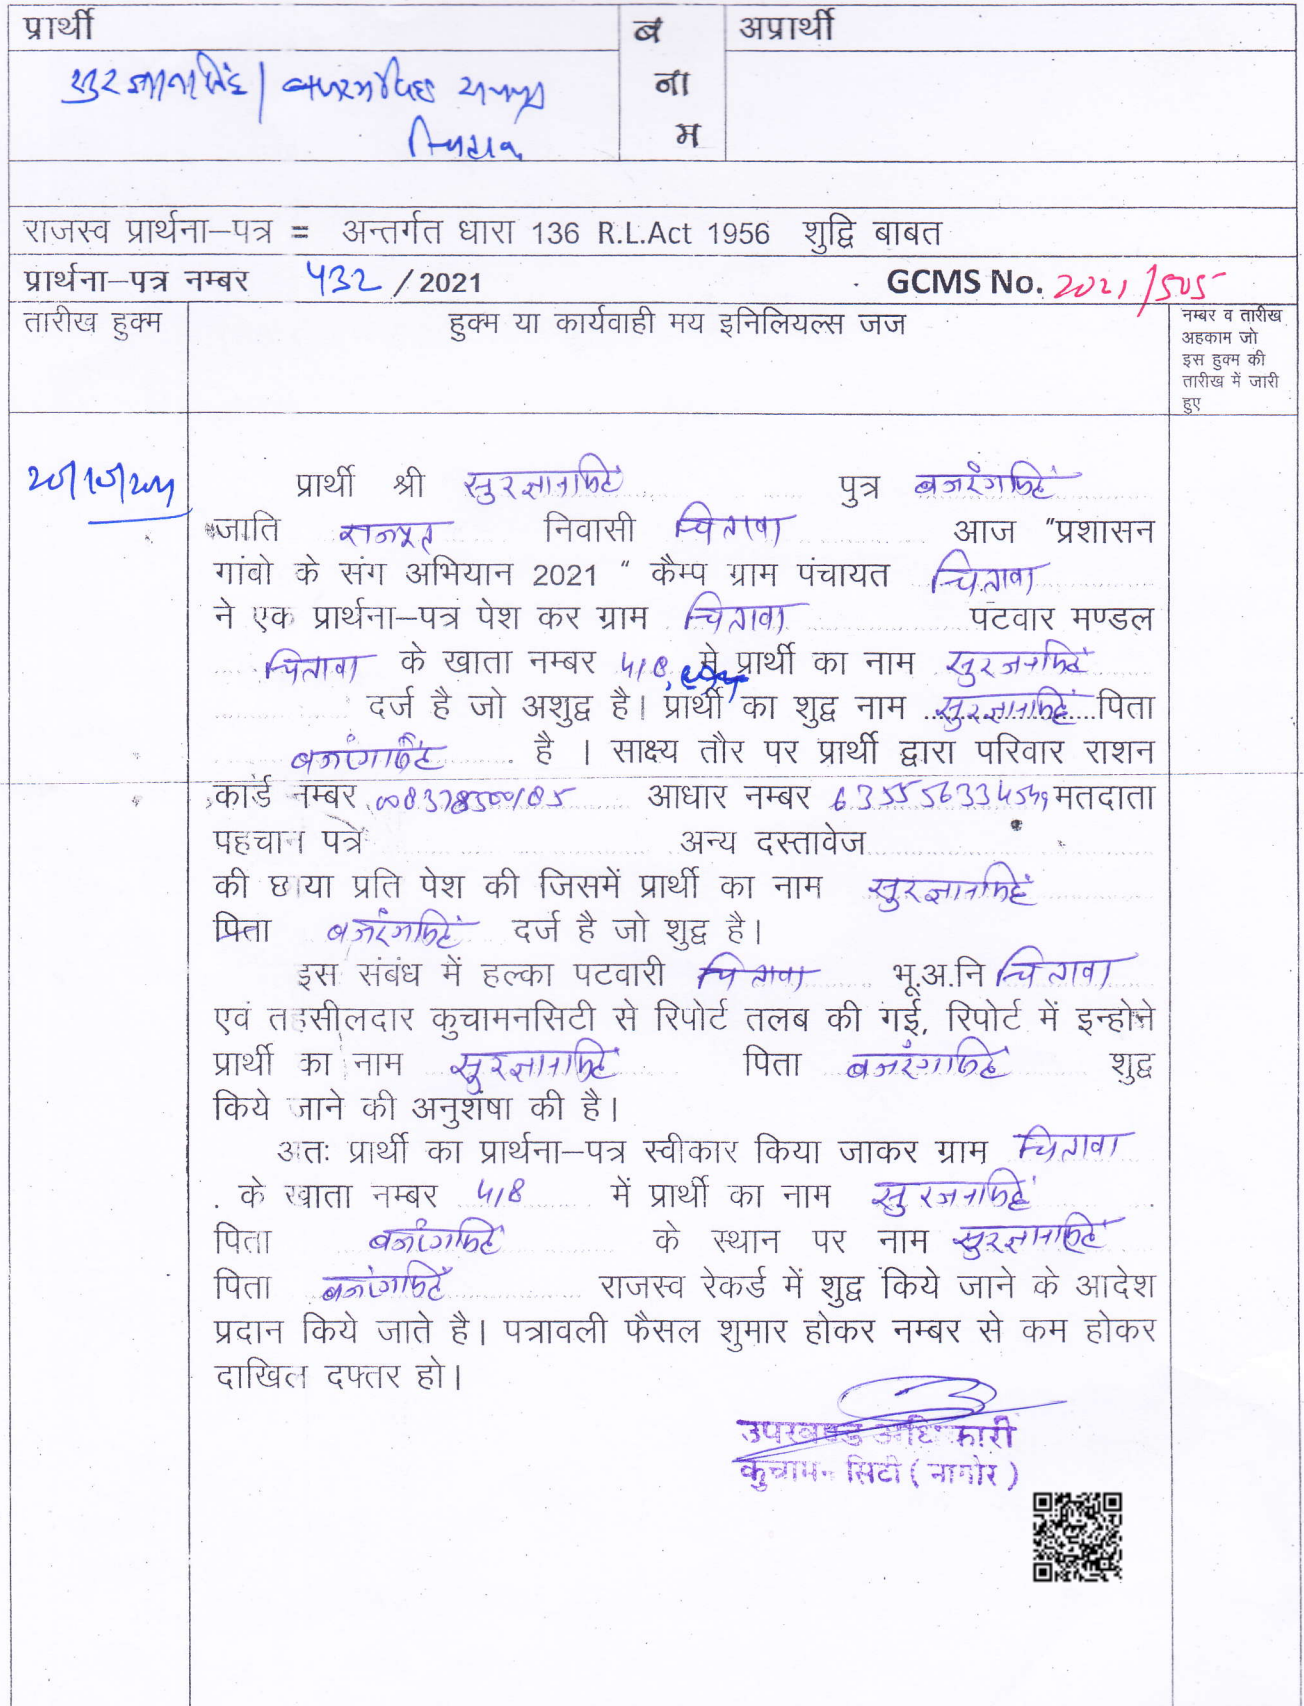 प्रार्थी ब ना म अप्रार्थी
सुरज्ञानसिंह / बजरंगसिंह राजपूत
चितावा
राजस्व प्रार्थना–पत्र = अन्तर्गत धारा 136 R.L.Act 1956 शुद्वि बाबत
प्रार्थना–पत्र नम्बर 432 / 2021 GCMS No. 2021/505
तारीख हुक्म हुक्म या कार्यवाही मय इनिलियल्स जज नम्बर व तारीख
अहकाम जो
इस हुक्म की
तारीख में जारी
हुए
प्रार्थी श्री सुरज्ञानसिंह पुत्र बजरंगसिंह
जाति राजपूत निवासी चितावा आज "प्रशासन
गांवो के संग अभियान 2021 " कैम्प ग्राम पंचायत चितावा
ने एक प्रार्थना–पत्र पेश कर ग्राम चितावा पटवार मण्डल
चितावा के खाता नम्बर 418, में प्रार्थी का नाम सुरजनसिंह
दर्ज है जो अशुद्व है। प्रार्थी का शुद्व नाम सुरज्ञानसिंह पिता
बजरंगसिंह है । साक्ष्य तौर पर प्रार्थी द्वारा परिवार राशन
कार्ड नम्बर आधार नम्बर मतदाता
पहचान पत्र अन्य दस्तावेज
की छाया प्रति पेश की जिसमें प्रार्थी का नाम सुरज्ञानसिंह
पिता बजरंगसिंह दर्ज है जो शुद्व है।
इस संबंध में हल्का पटवारी चितावा भू.अ.नि चितावा
एवं तहसीलदार कुचामनसिटी से रिपोर्ट तलब की गई, रिपोर्ट में इन्होने
प्रार्थी का नाम सुरज्ञानसिंह पिता बजरंगसिंह शुद्व
किये जाने की अनुशंषा की है।
अतः प्रार्थी का प्रार्थना–पत्र स्वीकार किया जाकर ग्राम चितावा
के खाता नम्बर 418 में प्रार्थी का नाम सुरजनसिंह
पिता बजरंगसिंह के स्थान पर नाम सुरज्ञानसिंह
पिता बजरंगसिंह राजस्व रेकर्ड में शुद्व किये जाने के आदेश
प्रदान किये जाते है। पत्रावली फैसल शुमार होकर नम्बर से कम होकर
दाखिल दफ्तर हो।
उपखण्ड अधिकारी
कुचामन सिटी ( नागोर )